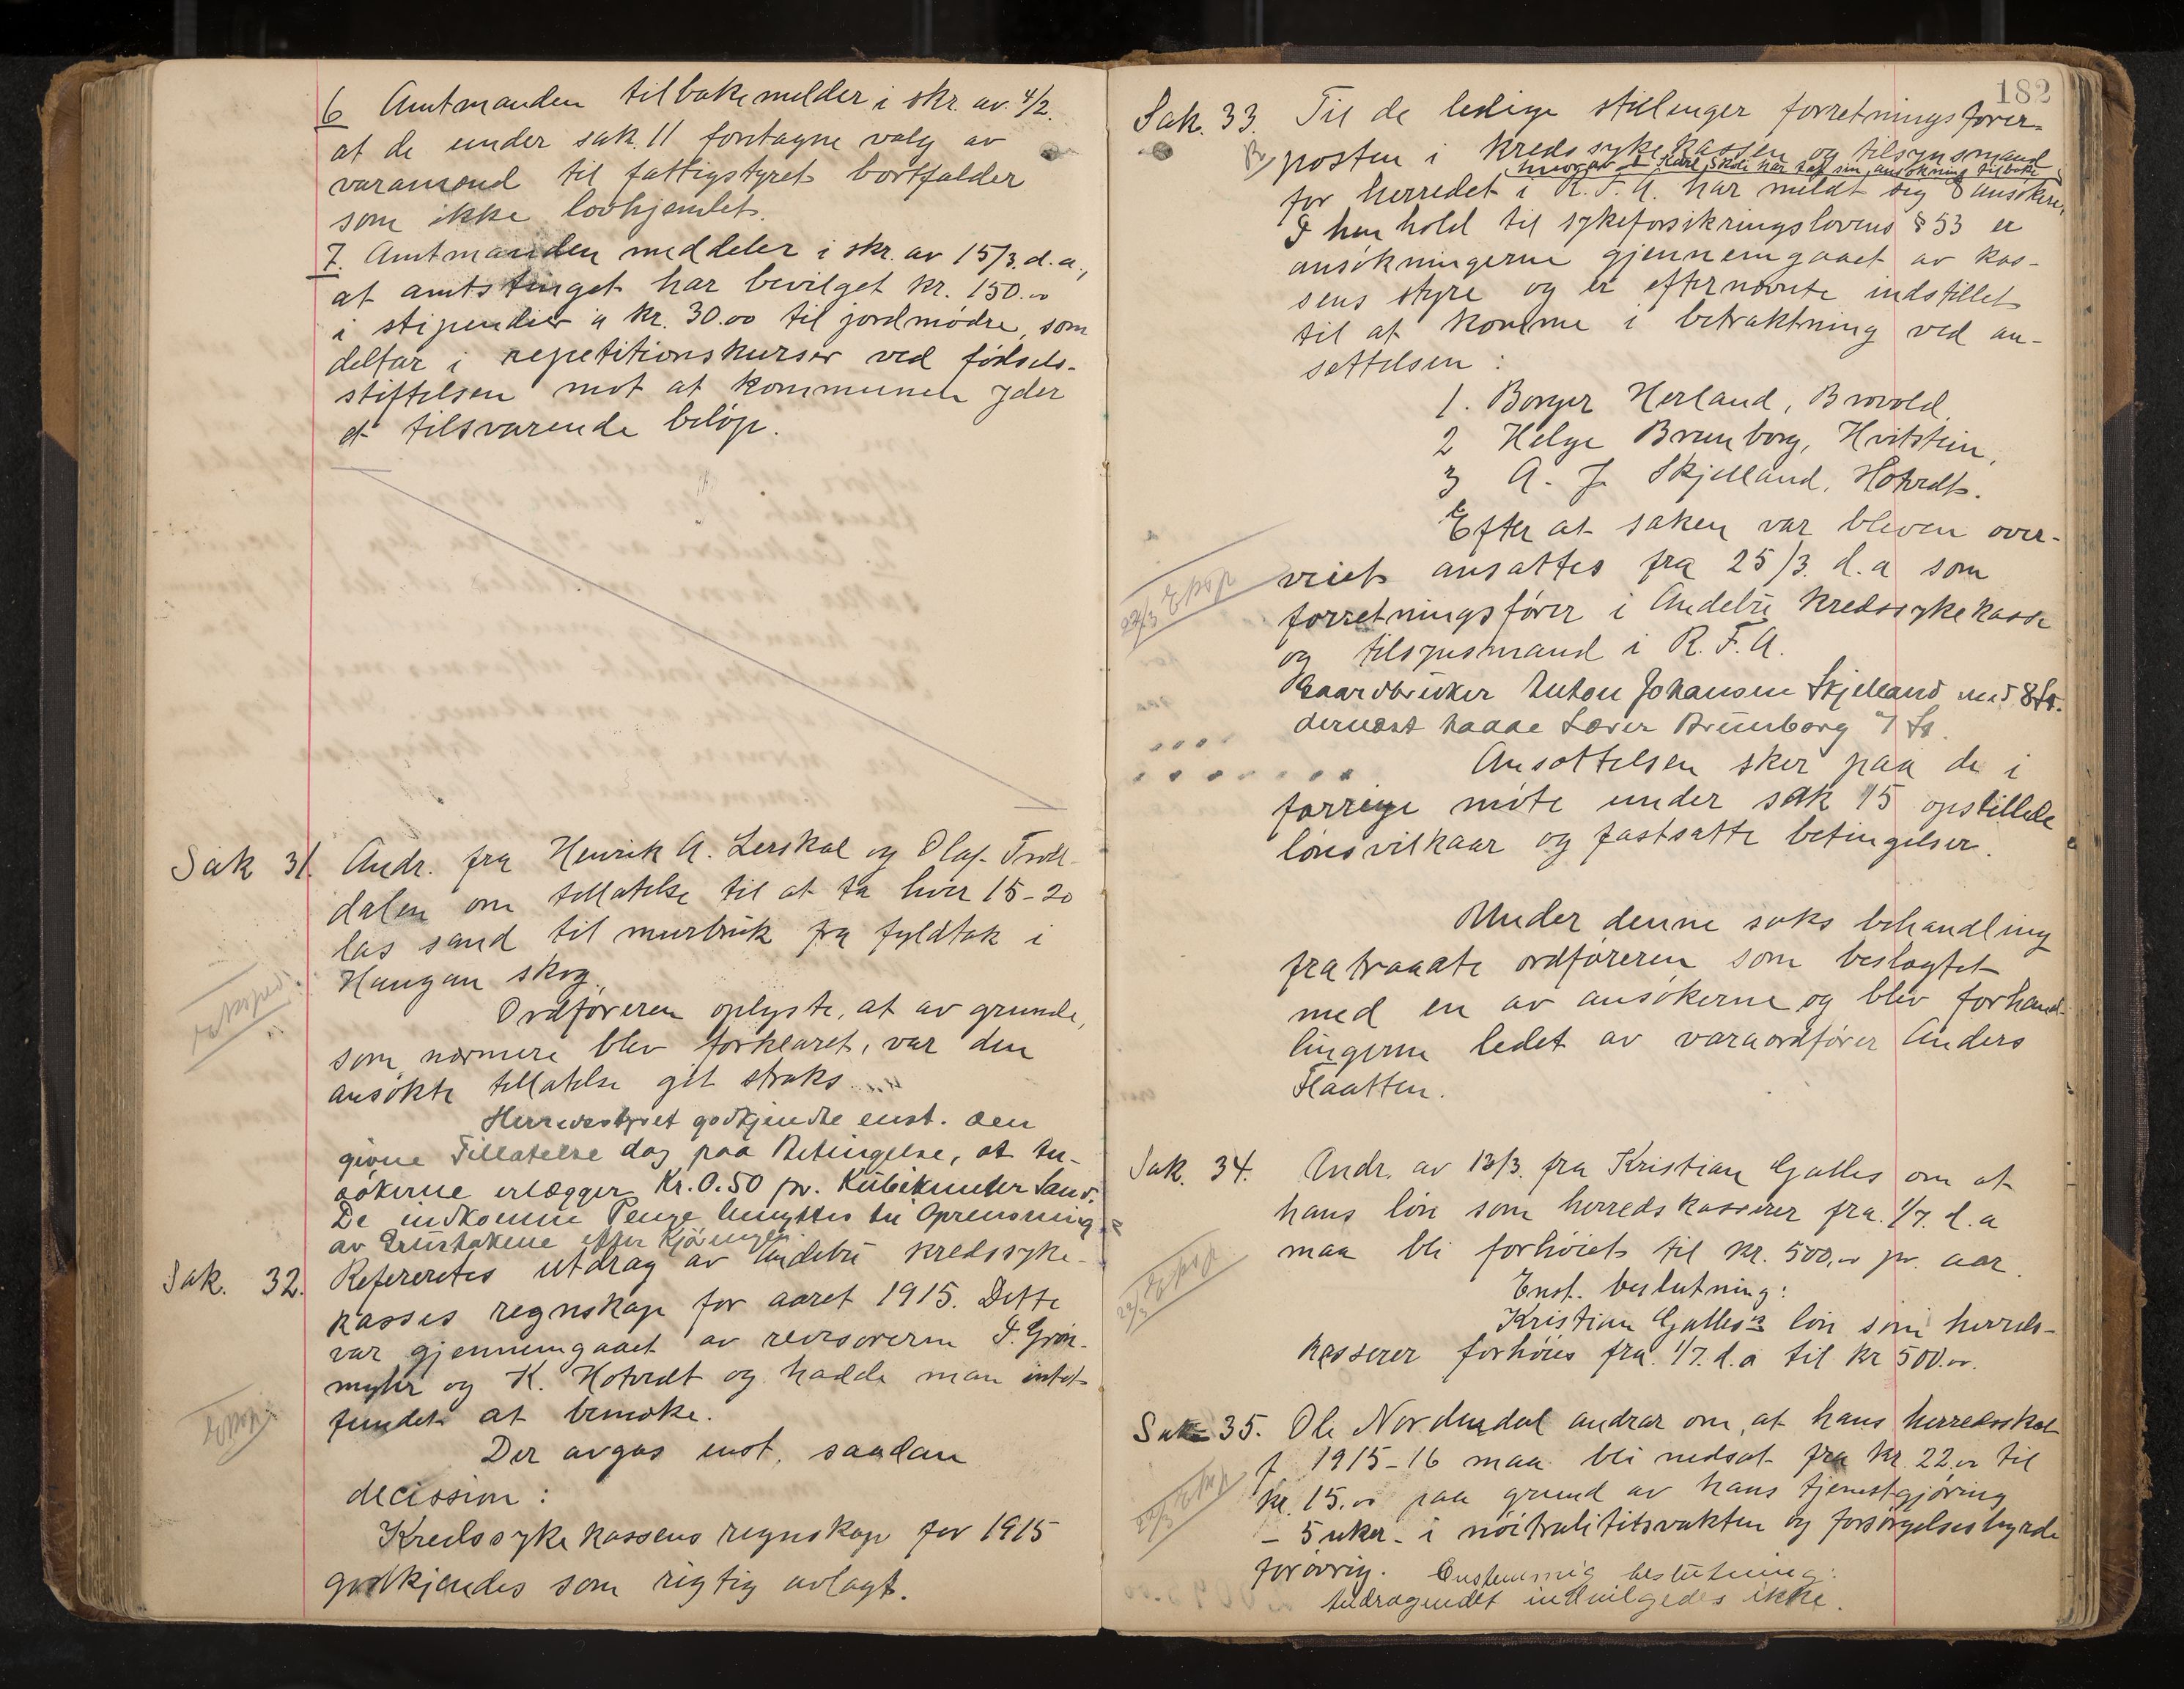 6 Amtmanden tilbakemelder i skr. av 4/2.
at de under sak. 11 foretagne valg av
varamænd til fattigstyret bortfalder
som ikke lovhjemlet.
7. Amtmanden meddeler i skr. av 15/3. d.a.,
at amtstinget har bevilget kr. 150.00
i stipendier a kr. 30.00 til jordmødre, som
deltar i repetitionskurser ved fødsels-
stiftelsen mot at kommunen yder
et tilsvarende beløp.
Sak 31. Andr. fra Henrik A. Lerskal og Olaf Troll-
dalen om tillatelse til at ta hver 15-20
las sand til murbruk fra fyldtak i
Haugan skog.
eksped.
Ordføreren oplyste, at av grunde,
som nærmere blev forklaret, var den
ansøkte tillatelse git straks.
Herredsstyret godkjendte enst. den
givne Tillatelse dog paa Betingelse, at An-
søkerne erlægger Kr. 0.50 pr. Kubikmeter Sand.
De indkomne Penge benyttes til Oprensning
av Grustakene efter Kjøringen.
Sak. 32. Refereretes utdrag av Andebu kredssyke-
kasses regnskap for aaret 1915. Dette
var gjennemgaaet av revisorerne P. Grøn-
myhr og K. Hotvedt og hadde man intet
fundet at bemerke.
Eksp.
Der avgas enst. saadan
decission:
Kredssykekassens regnskap for 1915
godkjendes som rigtig avlagt.
182
Sak. 33. Til de ledige stillinger forretningsfører-
posten i Kredssykekassen og tilsynsmand
hvorav 1 Karl Skdi har tat sin ansøkning tilbake
for herredet i R.F.A. har meldt sig 8 ansøkere,
I henhold til sykeforsikringslovens § 53 er
ansøkningerne gjennemgaaet av kas-
sens styre og er efternævnte indstillet
til at komme i betraktning ved an-
sættelsen:
1. Borger Herland, Brovold.
2 Helge Brunborg, Hvitstein,
3 A. J. Skjelland, Hotvedt.
Efter at saken var bleven over-
veiet ansattes fra 25/3. d.a som
22/3 Eksp
forretningsfører i Andebu Kredssykekasse
og tilsynsmand i R.F.A.
Gaardbruker Anton Johansen Skjelland med 8 St.
dernæst hadde Lærer Brunborg 7 St.
Ansættelsen sker paa de i
forrige møte under sak 15 opstillede
lønsvilkaar og fastsatte betingelser.
Under denne saks behandling
fratraadte ordføreren som beslægtet
med en av ansøkerne og blev forhand-
lingerne ledet av varaordfører Anders
Flaatten.
Sak. 34. Andr. av 13/3. fra Kristian Galles om at
hans løn som herredskasserer fra. 1/7. d.a
maa bli forhøiet til kr. 500.00 pr. aar.
22/3 Eksp.
Enst. beslutning:
Kristian Galles's løn som herreds-
kasserer forhøies fra. 1/7. d.a til kr 500.00.
Sak 35. Ole Nordendal andrar om, at hans herredsskat
f. 1915-16 maa bli nedsat fra kr. 22.00 til
kr. 15.00 paa grund av hans tjenestgjøring
22/3 Eksp
- 5 uker - i nøitralitetsvakten og forsørgelsesbyrde
forøvrig. Enstemmig beslutning:
Andragendet indvilgedes ikke.